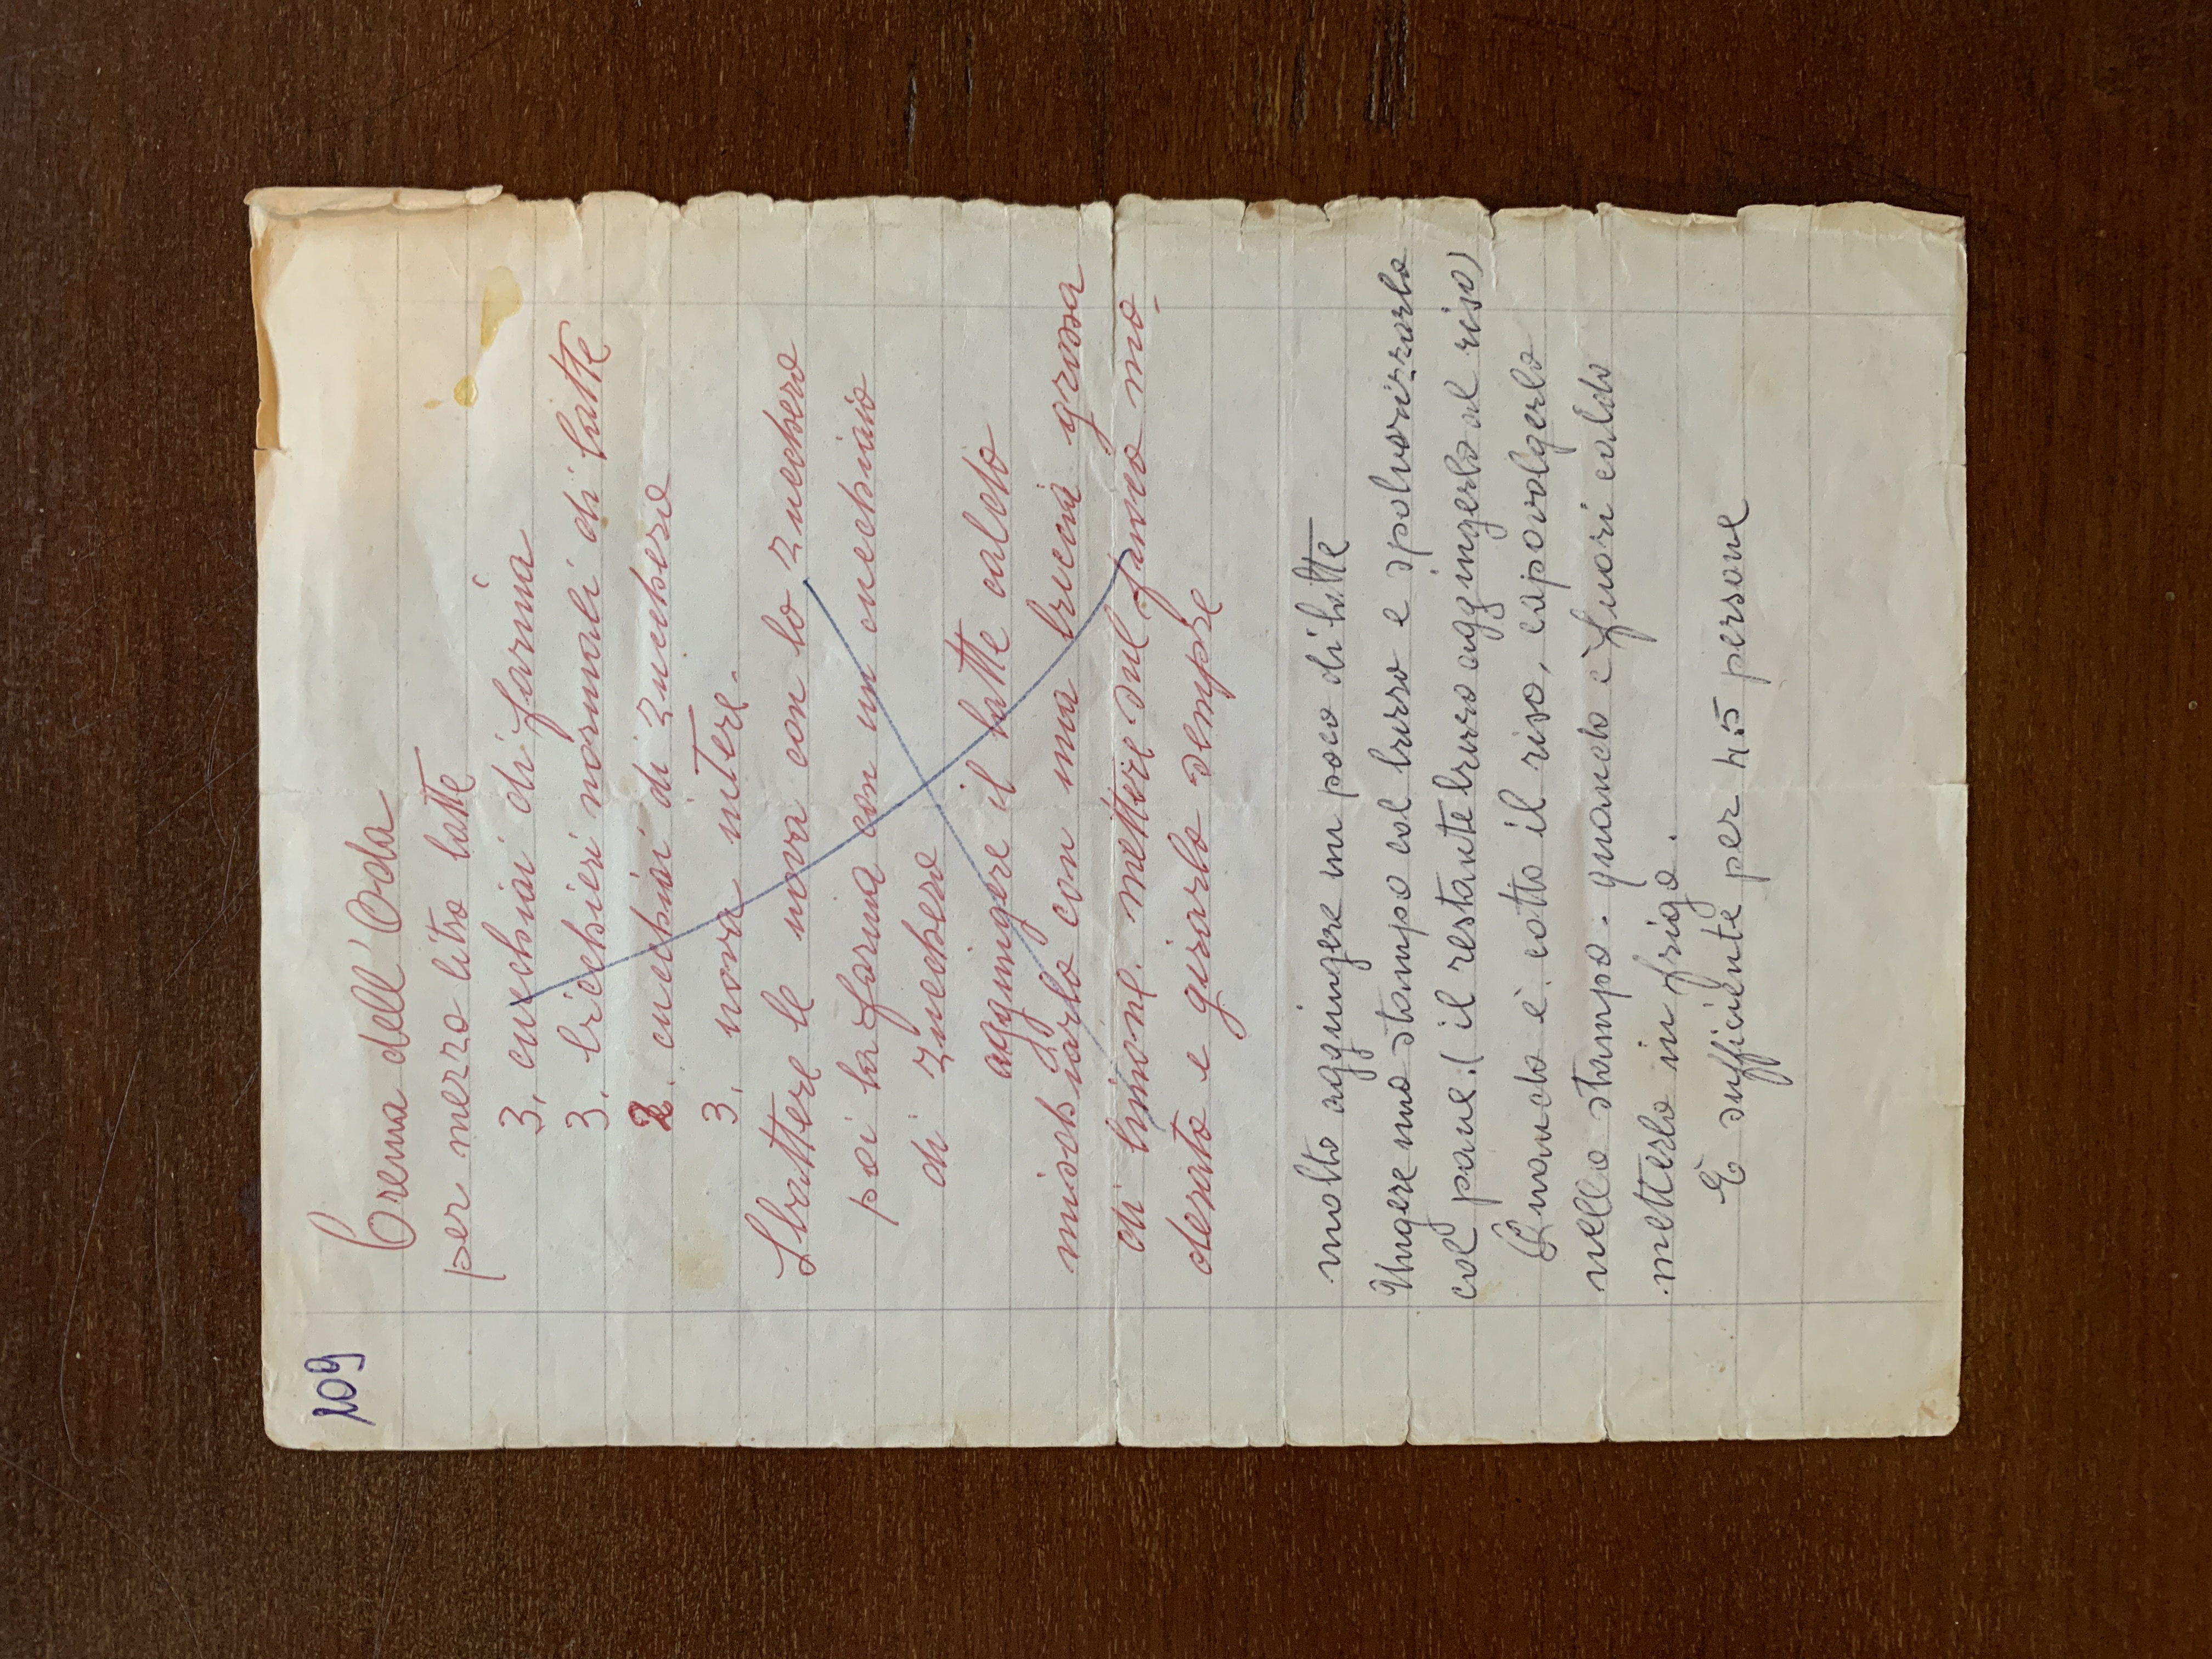 109
Crema dell'Oda
per mezzo litro latte
3. cucchiai di farina
3. bicchieri normali di latte
2. cucchiai di zucchero
3. uova intere.
Sbattere le uova con lo zucchero
poi la farina con un cucchiaio
di zucchero
aggiungere il latte caldo
mischiarlo con una buccia grossa
di limone. mettere sul fuoco mo-
derato e girarlo sempre
molto aggiungere un poco di latte
Ungere uno stampo col burro e spolverizzarlo
col pane. (il restante burro aggingerlo al riso)
Quando è. cotto il riso, capovolgerlo
nello stampo. quando è fuori caldo
metterlo in frigo.
È sufficiente per 4.5 persone